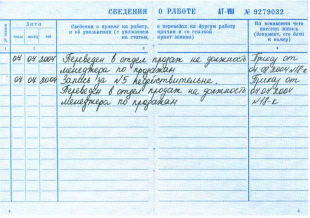 СВЕДЕНИЯ О РАБОТЕ АТ-VIII № 9279032
Дата
Сведения о приеме на работу, о переводах на другую работу
и об увольнении (с указанием причин и со ссылкой
на статью, пункт закона)
На основании чего
внесена запись
(документ, его дата
и номер)
число
месяц
год
1 2 3 4
04 04 2004 Переведен в отдел продаж на должность
менеджера по продажам
№17-к
04 04 2004 Запись за №5 недействительна. Приказ от
Переведен в отдел продаж на должность 04.04.2004
менеджера по продажам №17-к